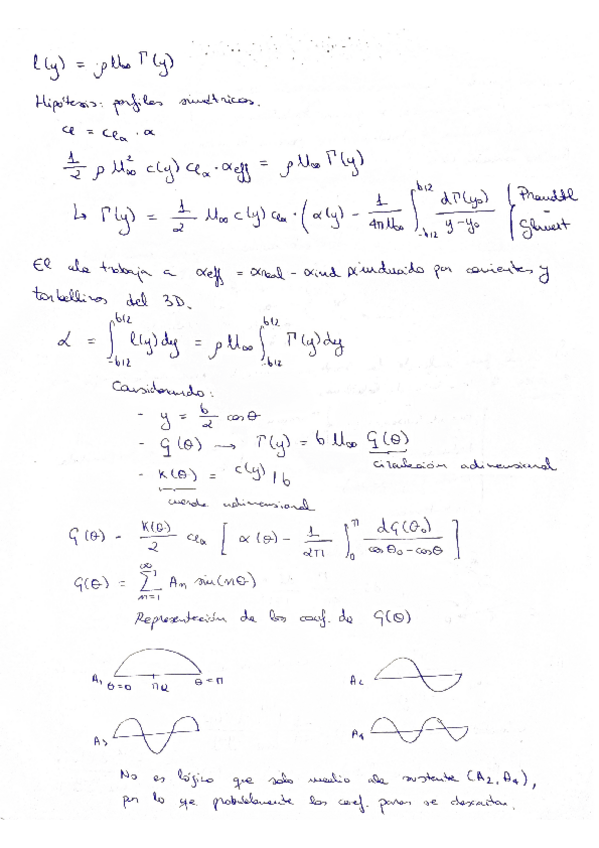 l(y) = ρU∞ Γ(y)
Hipótesis: perfiles simétricos.
cl = clα · α
1/2 ρ U∞² c(y) clα · αeff = ρ U∞ Γ(y)
↳ Γ(y) = 1/2 U∞ c(y) clα · (α(y) - 1/4πU∞ ∫_{-b/2}^{b/2} dΓ(y₀)/y-y₀ (Prandtl - Glauert
El ala trabaja a αeff = αreal - αind αinducido por corrientes y
torbellinos del 3D.
L = ∫_{-b/2}^{b/2} l(y)dy = ρU∞ ∫_{-b/2}^{b/2} Γ(y)dy
Considerando:
- y = b/2 cosθ
- G(θ) → Γ(y) = b U∞ G(θ)
circulación adimensional
- K(θ) = c(y)/b
cuerda adimensional
G(θ) = K(θ)/2 clα [ α(θ) - 1/2π ∫_0^π dG(θ₀)/cosθ₀-cosθ ]
G(θ) = Σ_{n=1}^∞ An sin(nθ)
Representación de los coef. de G(θ)
A₁ θ=0 π/2 θ=π A₂
A₃ A₄
No es lógico que solo medio ala sustente (A₂, A₄),
por lo que probablemente los coef. pares se descartan.